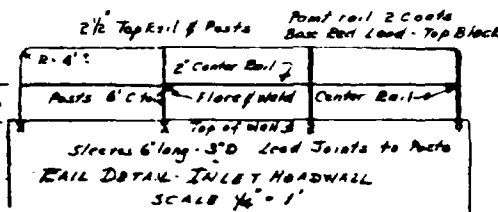 2½" Top Rail & Posts
Paint rail 2 Coats
Base Red Lead - Top Black
R = 4"
2" Center Rail
Posts 6' C to
Flare & Weld
Center Rail
Top of Walls
Sleeves 6" long - 3" D Lead Joints to Posts
RAIL DETAIL - INLET HEADWALL
SCALE ¼" = 1'